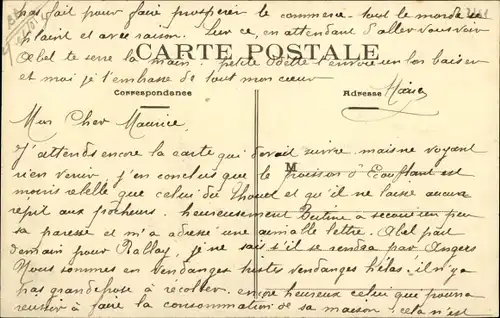 pas fait pour faire prospérer le commerce. tout le monde se
plaint et avec raison. Sur ce, en attendant d'aller vous voir
CARTE POSTALE
Abel te serre la main. petite Odette t'envoie un bon baiser
et moi je t'embrasse de tout mon cœur
Correspondance
Adresse
Mon Cher Maurice,
J'attends encore la carte qui devait suivre, mais ne voyant
M
rien venir, j'en conclus que le poisson d'Ecouflant est
moins rebelle que celui du Thouet et qu'il ne laisse aucun
répit aux pêcheurs. heureusement a secoué un peu
sa paresse et m'a adressé une aimable lettre. Abel part
demain pour Rallay, je ne sais s'il se rendra par Angers
Nous sommes en vendanges tristes vendanges hélas. il n'y a
pas grand chose à récolter. encore heureux celui qui pourra
réussir à faire la consommation de sa maison. c'est